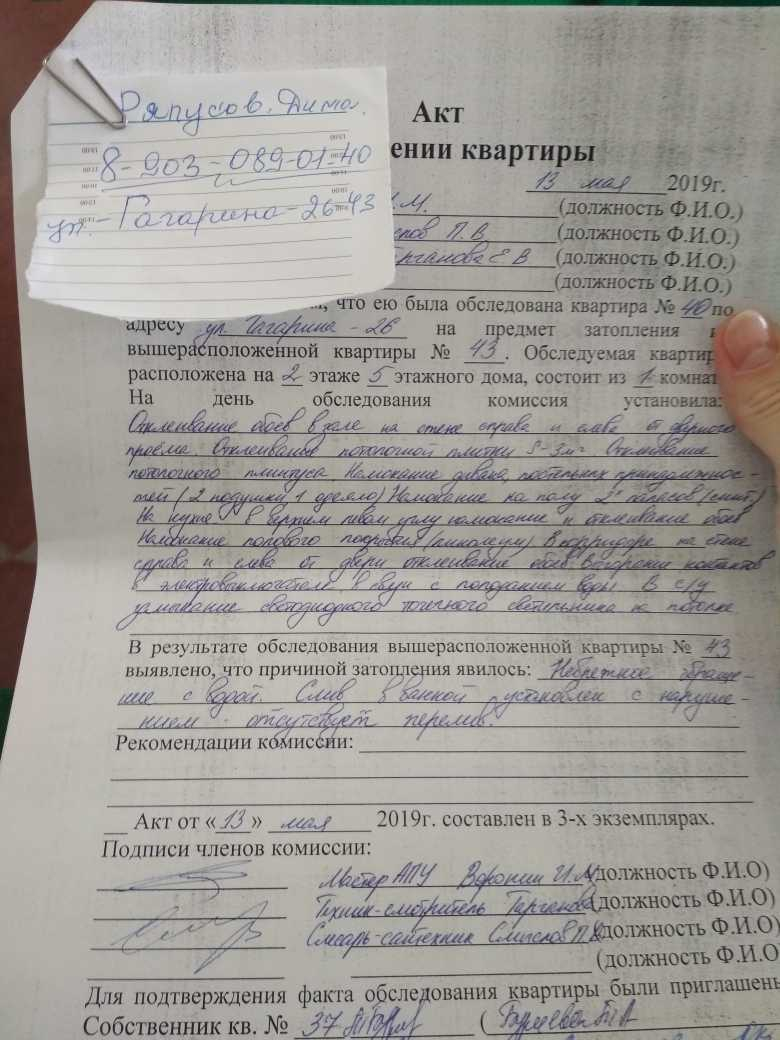 Ряпусов. Дима.
8-903-089-01-40
ул.-Гагарина-26-43
Акт
ении квартиры
13 мая 2019г.
.М. (должность Ф.И.О.)
П.В (должность Ф.И.О.)
Е В (должность Ф.И.О.)
(должность Ф.И.О.)
, что ею была обследована квартира № 40 по
адресу ул. Гагарина - 26 на предмет затопления и
вышерасположенной квартиры № 43. Обследуемая кварти
расположена на 2 этаже 5 этажного дома, состоит из 1 комнат
На день обследования комиссия установила:
Отклеивание обоев в зале на стене справа и слева от дверного
проёма. Отклеивание потолочной плитки S-3м². Отклеивание
потолочного плинтуса. Намокание дивана, постельных принадлежнос-
тей (2 подушки, 1 одеяло) Намокание на полу 2х паласов
На кухне в верхнем левом углу намокание и отклеивание обоев
Намокание полового покрытия (линолеум) В корридоре на стене
справа и слева от двери отклеивание обоев. Возгорание контактов
в электровыключателе. В связи с попаданием воды. В с/у
замыкание светодиодного точечного светильника на потолке
В результате обследования вышерасположенной квартиры № 43
выявлено, что причиной затопления явилось: Небрежное обраще-
ние с водой. Слив в ванной установлен с наруше-
нием - отсутствует перелив.
Рекомендации комиссии:
Акт от «13» мая 2019г. составлен в 3-х экземплярах.
Подписи членов комиссии:
Мастер АПУ Воронин И.М (должность Ф.И.О)
Техник-смотритель (должность Ф.И.О)
Слесарь-сантехник (должность Ф.И.О)
(должность Ф.И.О
Для подтверждения факта обследования квартиры были приглашен
Собственник кв. № 37 (